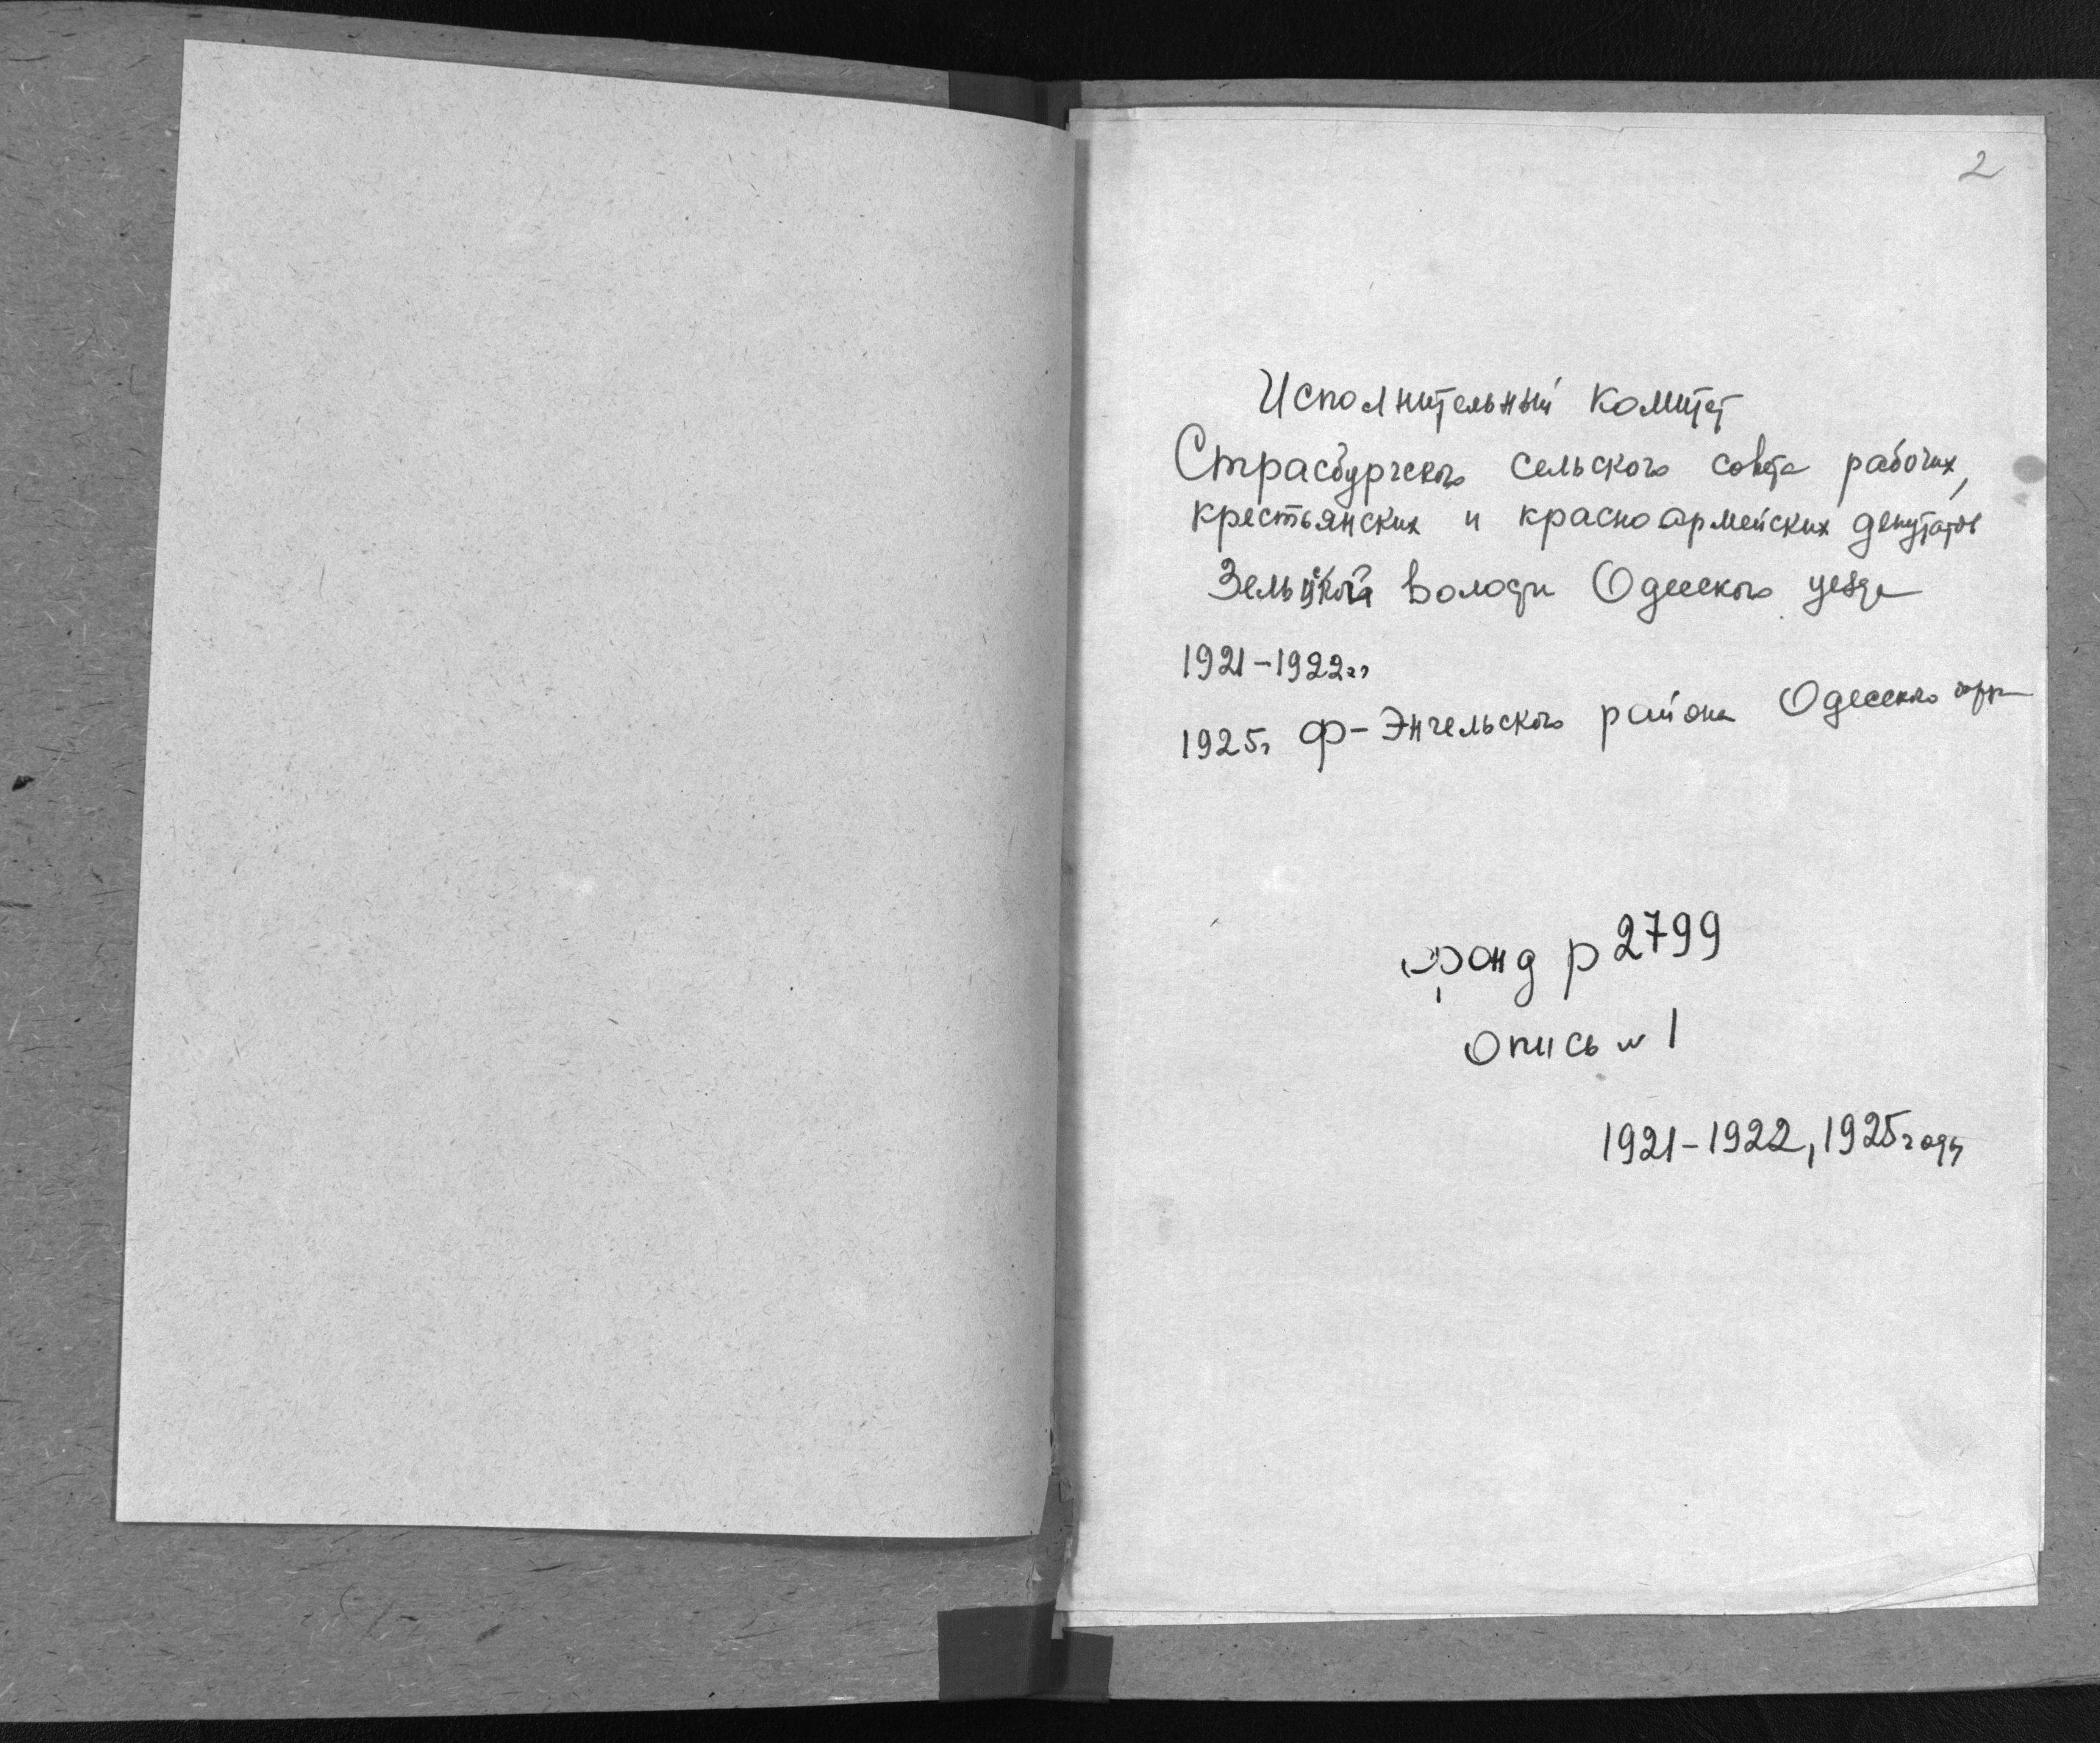 2
Исполнительный комитет
Страсбургского сельского совета рабочих,
крестьянских и красноармейских депутатов
Зельцкой волости Одесского уезда
1921-1922гг
1925г Ф-Энгельского района Одесского
фонд р 2799
опись № 1
1921-1922, 1925 годы